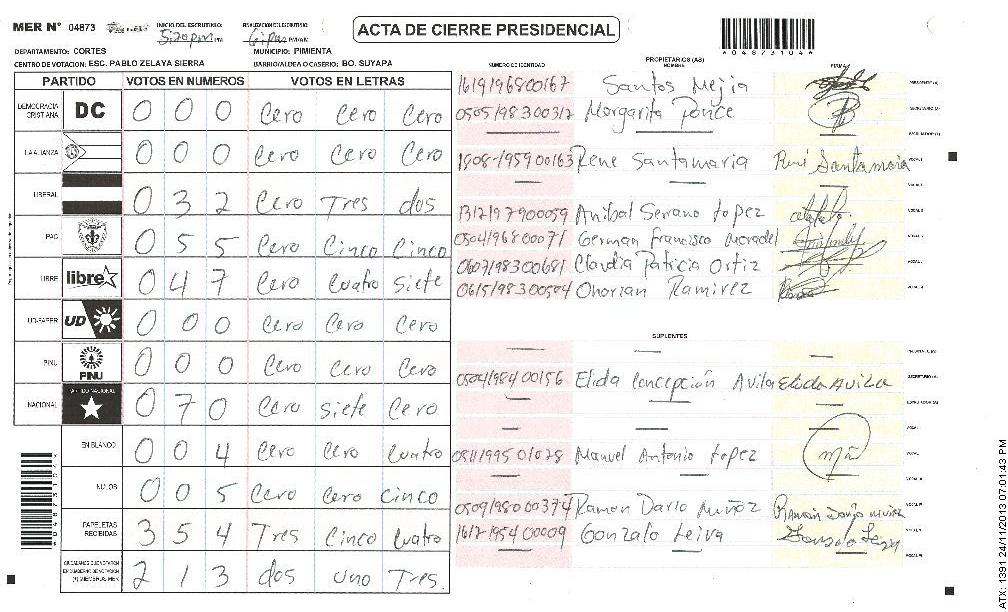 MER N° 04873
INICIO DEL ESCRUTINIO: 5:20 pm PM
FINALIZACION ESCRUTINIO: PM/AM
ACTA DE CIERRE PRESIDENCIAL
*04873104*
DEPARTAMENTO: CORTES
MUNICIPIO: PIMIENTA
CENTRO DE VOTACION: ESC. PABLO ZELAYA SIERRA
BARRIO/ALDEA O CASERIO: BO. SUYAPA
PARTIDO VOTOS EN NUMEROS VOTOS EN LETRAS
DEMOCRACIA CRISTIANA DC 0 0 0 Cero Cero Cero
LA ALIANZA 0 0 0 Cero Cero Cero
LIBERAL 0 3 2 Cero Tres dos
PAC 0 5 5 Cero Cinco Cinco
LIBRE libre 0 4 7 Cero Cuatro Siete
UD-FAPER UD 0 0 0 Cero Cero Cero
PINU PINU 0 0 0 Cero Cero Cero
NACIONAL PARTIDO NACIONAL 0 7 0 Cero Siete Cero
EN BLANCO 0 0 4 Cero Cero Cuatro
NULOS 0 0 5 Cero Cero Cinco
PAPELETAS RECIBIDAS 3 5 4 Tres Cinco Cuatro
CIUDADANOS QUE VOTARON EN CUADERNO DE VOTACION (+) MIEMBROS MER 2 1 3 dos uno Tres.
PROPIETARIOS (AS)
NUMERO DE IDENTIDAD NOMBRE FIRMA
1619196800167 Santos Mejia
0505198300312 Margarita Ponce
1808-1959 00163 Rene Santamaria René Santamaria
1312197900059 Anibal Serrano Lopez
0504196800071 German Francisco
0607198300681 Claudia Patricia Ortiz
Ramirez
SUPLENTES
0504198400156 Elida Concepción Avila Elida Avila
Manuel Antonio Lopez
0509198000374 Ramon Dario Muñoz
1612195400009 Gonzalo Leiva
ATX: 1391 24/11/2013 07:01:43 PM